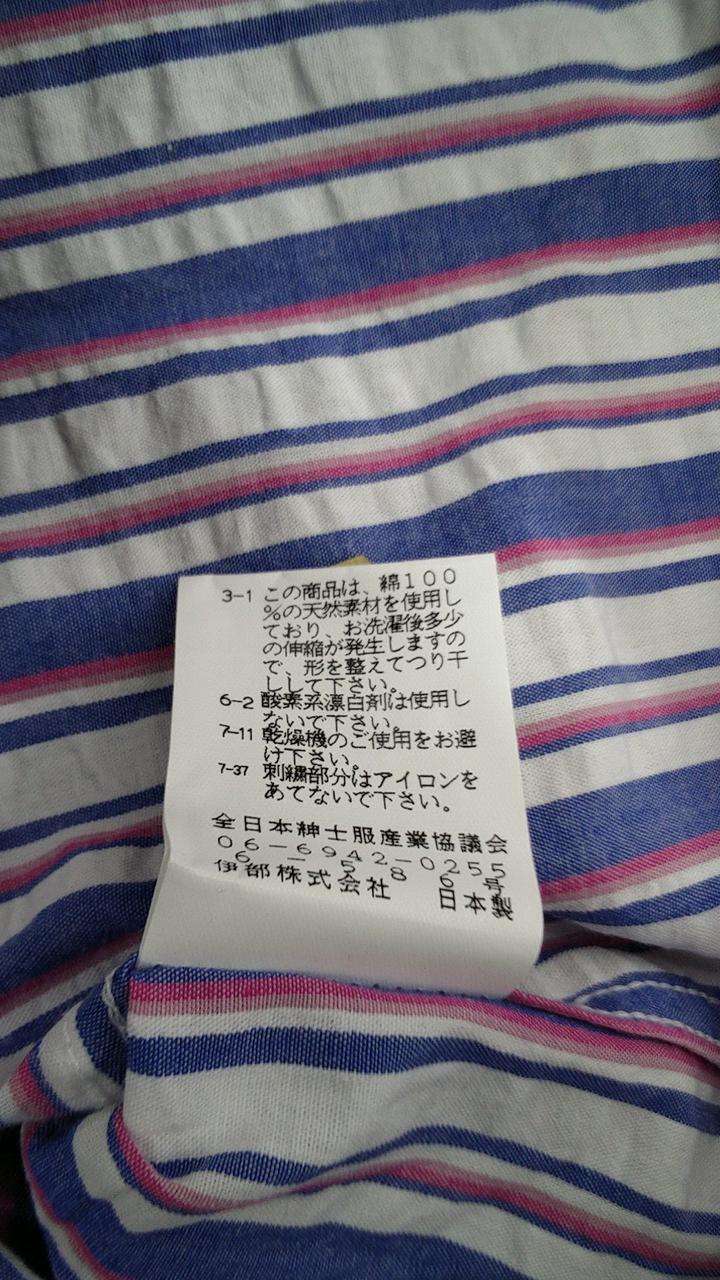 3-1 この商品は、綿100
%の天然素材を使用し
ており、お洗濯後多少
の伸縮が発生しますの
で、形を整えてつり干
しして下さい。
6-2 酸素系漂白剤は使用し
ないで下さい。
7-11 乾燥機のご使用をお避
け下さい。
7-37 刺繍部分はアイロンを
あてないで下さい。
全日本紳士服産業協議会
06-6942-0255
6-586号
伊都株式会社 日本製